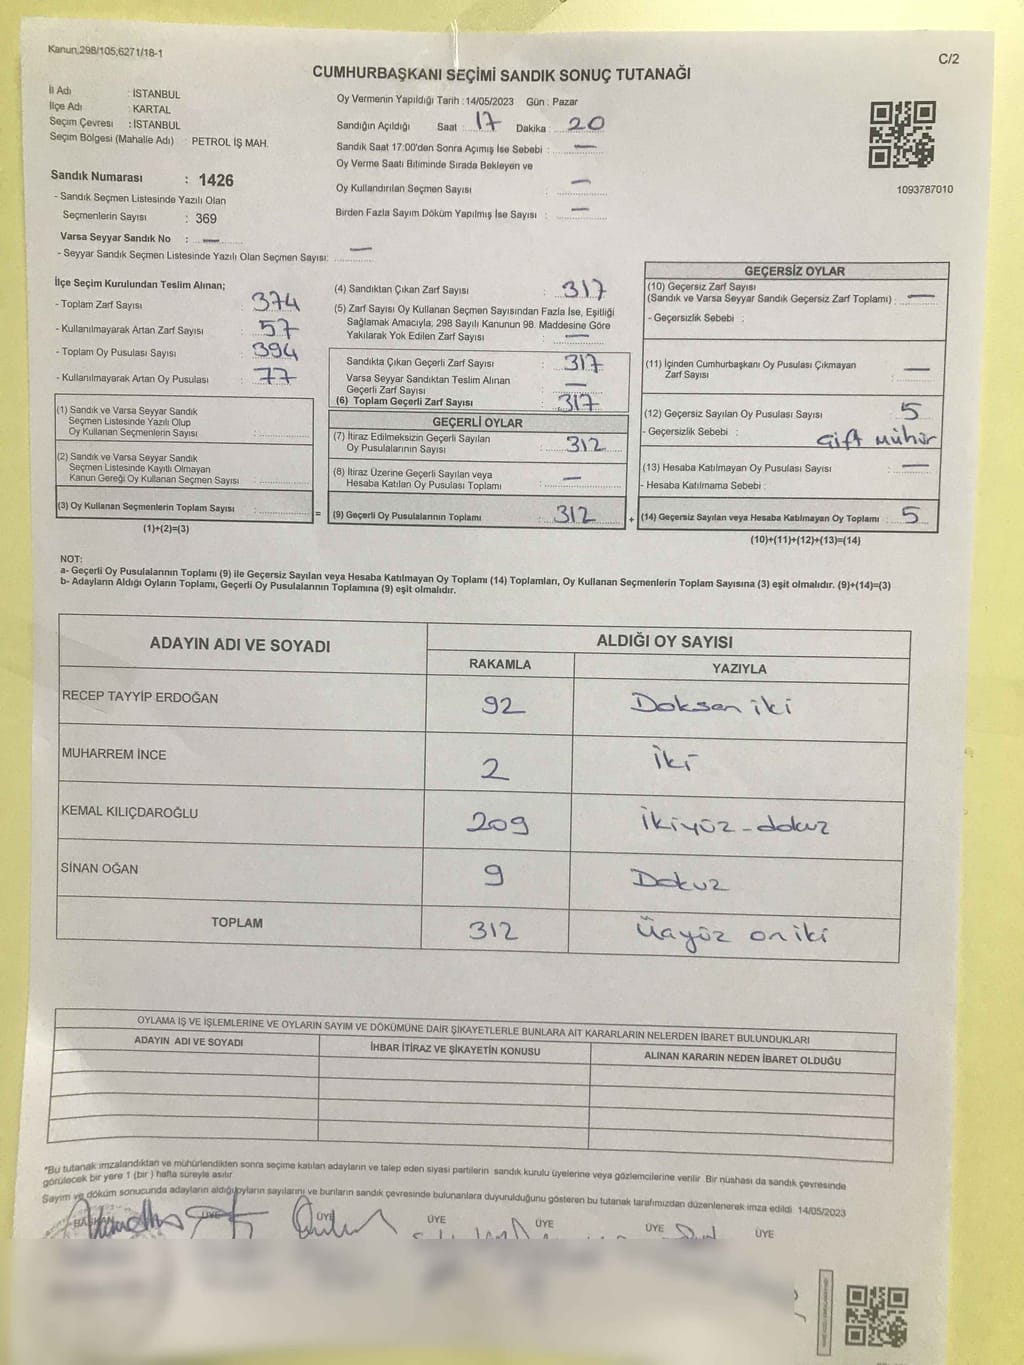 Kanun,298/105;6271/18-1
C/2
CUMHURBAŞKANI SEÇİMİ SANDIK SONUÇ TUTANAĞI
İl Adı : İSTANBUL
İlçe Adı : KARTAL
Seçim Çevresi : İSTANBUL
Seçim Bölgesi (Mahalle Adı) : PETROL İŞ MAH.
Sandık Numarası : 1426
- Sandık Seçmen Listesinde Yazılı Olan
Seçmenlerin Sayısı : 369
Varsa Seyyar Sandık No : —
- Seyyar Sandık Seçmen Listesinde Yazılı Olan Seçmen Sayısı: —
Oy Vermenin Yapıldığı Tarih : 14/05/2023 Gün : Pazar
Sandığın Açıldığı Saat : 17 Dakika : 20
Sandık Saat 17:00'den Sonra Açımış İse Sebebi : —
Oy Verme Saati Bitiminde Sırada Bekleyen ve
Oy Kullandırılan Seçmen Sayısı : —
Birden Fazla Sayım Döküm Yapılmış İse Sayısı : —
1093787010
İlçe Seçim Kurulundan Teslim Alınan;
- Toplam Zarf Sayısı : 374
- Kullanılmayarak Artan Zarf Sayısı : 57
- Toplam Oy Pusulası Sayısı : 394
- Kullanılmayarak Artan Oy Pusulası : 77
(1) Sandık ve Varsa Seyyar Sandık
Seçmen Listesinde Yazılı Olup
Oy Kullanan Seçmenlerin Sayısı :
(2) Sandık ve Varsa Seyyar Sandık
Seçmen Listesinde Kayıtlı Olmayan
Kanun Gereği Oy Kullanan Seçmen Sayısı :
(3) Oy Kullanan Seçmenlerin Toplam Sayısı : =
(1)+(2)=(3)
(4) Sandıktan Çıkan Zarf Sayısı : 317
(5) Zarf Sayısı Oy Kullanan Seçmen Sayısından Fazla İse, Eşitliği
Sağlamak Amacıyla, 298 Sayılı Kanunun 98. Maddesine Göre
Yakılarak Yok Edilen Zarf Sayısı : —
Sandıkta Çıkan Geçerli Zarf Sayısı : 317
Varsa Seyyar Sandıktan Teslim Alınan
Geçerli Zarf Sayısı : —
(6) Toplam Geçerli Zarf Sayısı : 317
GEÇERLİ OYLAR
(7) İtiraz Edilmeksizin Geçerli Sayılan
Oy Pusulalarının Sayısı : 312
(8) İtiraz Üzerine Geçerli Sayılan veya
Hesaba Katılan Oy Pusulası Toplamı : —
(9) Geçerli Oy Pusulalarının Toplamı : 312 +
GEÇERSİZ OYLAR
(10) Geçersiz Zarf Sayısı
(Sandık ve Varsa Seyyar Sandık Geçersiz Zarf Toplamı) : —
- Geçersizlik Sebebi :
(11) İçinden Cumhurbaşkanı Oy Pusulası Çıkmayan
Zarf Sayısı : —
(12) Geçersiz Sayılan Oy Pusulası Sayısı : 5
- Geçersizlik Sebebi : Çift Mühür
(13) Hesaba Katılmayan Oy Pusulası Sayısı : —
- Hesaba Katılmama Sebebi :
(14) Geçersiz Sayılan veya Hesaba Katılmayan Oy Toplamı : 5
(10)+(11)+(12)+(13)=(14)
NOT:
a- Geçerli Oy Pusulalarının Toplamı (9) ile Geçersiz Sayılan veya Hesaba Katılmayan Oy Toplamı (14) Toplamları, Oy Kullanan Seçmenlerin Toplam Sayısına (3) eşit olmalıdır. (9)+(14)=(3)
b- Adayların Aldığı Oyların Toplamı, Geçerli Oy Pusulalarının Toplamına (9) eşit olmalıdır.
ADAYIN ADI VE SOYADI ALDIĞI OY SAYISI
RAKAMLA YAZIYLA
RECEP TAYYİP ERDOĞAN 92 Doksan iki
MUHARREM İNCE 2 İki
KEMAL KILIÇDAROĞLU 209 İkiyüz-dokuz
SİNAN OĞAN 9 Dokuz
TOPLAM 312 Üçyüz oniki
OYLAMA İŞ VE İŞLEMLERİNE VE OYLARIN SAYIM VE DÖKÜMÜNE DAİR ŞİKAYETLERLE BUNLARA AİT KARARLARIN NELERDEN İBARET BULUNDUKLARI
ADAYIN ADI VE SOYADI İHBAR İTİRAZ VE ŞİKAYETİN KONUSU ALINAN KARARIN NEDEN İBARET OLDUĞU
*Bu tutanak imzalandıktan ve mühürlendikten sonra seçime katılan adayların ve talep eden siyasi partilerin sandık kurulu üyelerine veya gözlemcilerine verilir. Bir nüshası da sandık çevresinde
görülecek bir yere 1 (bir ) hafta süreyle asılır.
Sayım ve döküm sonucunda adayların aldığı oyların sayılarını ve bunların sandık çevresinde bulunanlara duyurulduğunu gösteren bu tutanak tarafımızdan düzenlenerek imza edildi. 14/05/2023
BAŞKAN ÜYE ÜYE ÜYE ÜYE ÜYE ÜYE